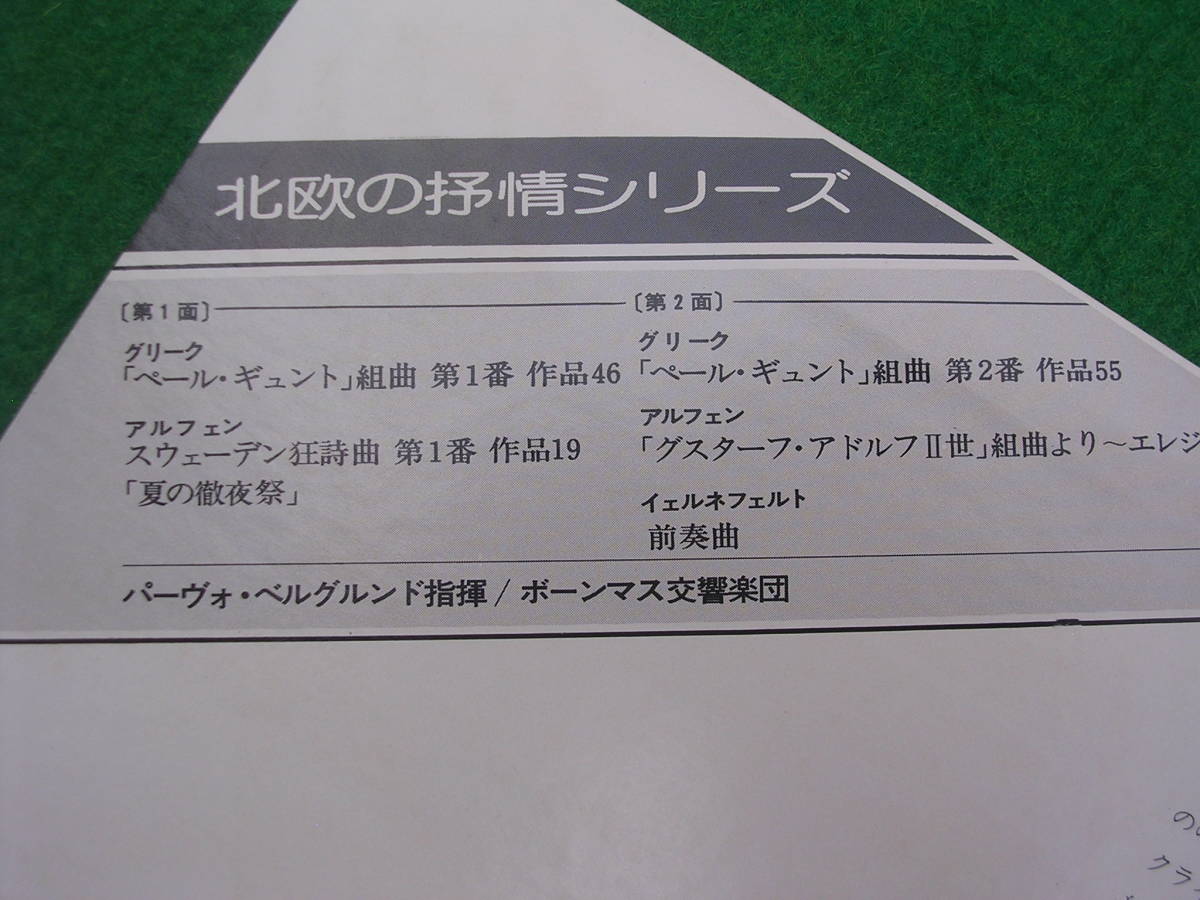 北欧の抒情シリーズ
〔第1面〕
グリーク
「ペール・ギュント」組曲 第1番 作品46
アルフェン
スウェーデン狂詩曲 第1番 作品19
「夏の徹夜祭」
〔第2面〕
グリーク
「ペール・ギュント」組曲 第2番 作品55
アルフェン
「グスターフ・アドルフⅡ世」組曲より〜エレジ
イェルネフェルト
前奏曲
パーヴォ・ベルグルンド指揮/ボーンマス交響楽団
クラ